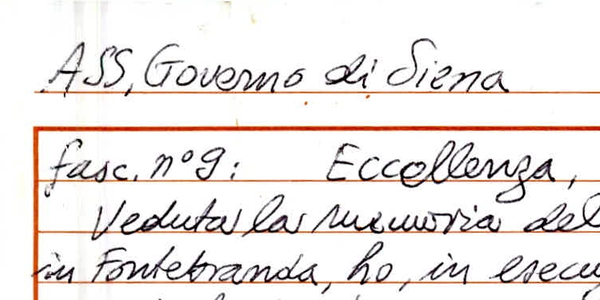 ASS, Governo di Siena
fasc. n° 9: Eccellenza,
Veduta la memoria del
in Fontebranda, ho, in esecu